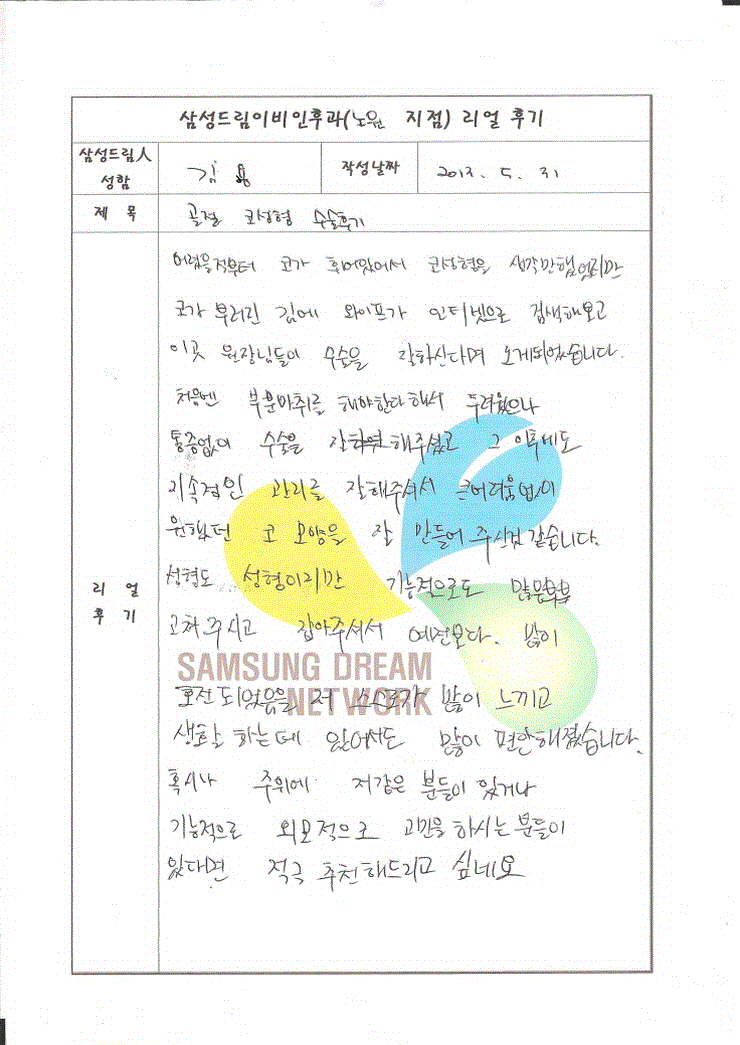 삼성드림이비인후과(노원 지점) 리얼 후기
삼성드림人 성함
김 용
작성날짜
2013. 5. 31
제 목
골절 코성형 수술후기
리 얼 후 기
어렸을적부터 코가 휘어있어서 코성형을 생각만했었지만
코가 부러진 김에 와이프가 인터넷으로 검색해보고
이곳 원장님들이 수술을 잘하신다며 오게되었습니다.
처음엔 부분마취를 해야한다해서 두려웠으나
통증없이 수술을 잘 해주셨고 그 이후에도
지속적인 관리를 잘해주셔서 큰어려움없이
원했던 코 모양을 잘 만들어 주신것 같습니다.
성형도 성형이지만 기능적으로도 많은부분
고쳐주시고 잡아주셔서 예전보다. 많이
호전되었음을 저 스스로가 많이 느끼고
생활 하는데 있어서도 많이 편안해졌습니다.
혹시나 주위에 저같은 분들이 있거나
기능적으로 외모적으로 고민을 하시는분들이
있다면 적극 추천해드리고 싶네요
SAMSUNG DREAM
NETWORK